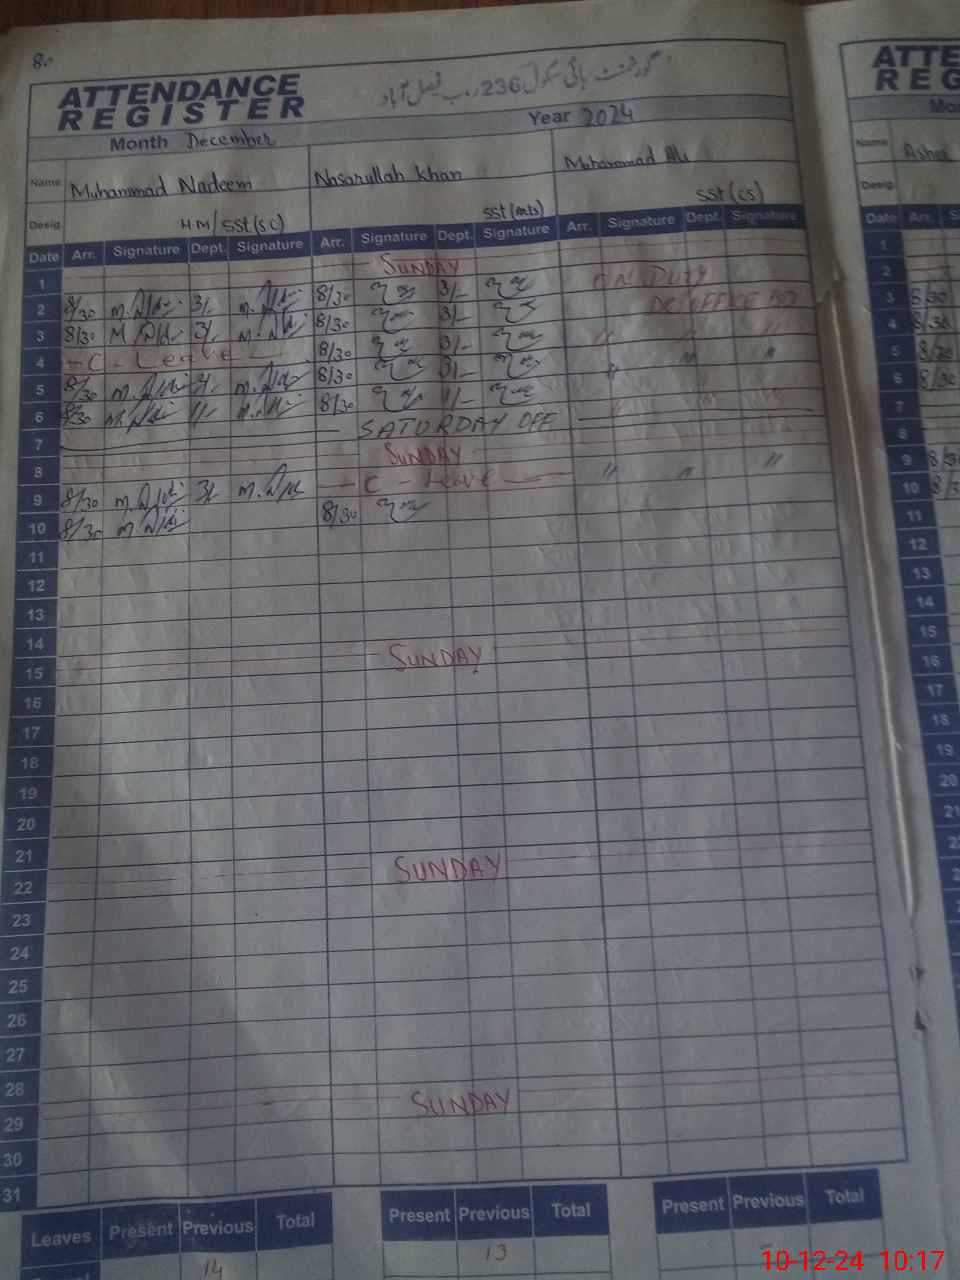 80
ATTENDANCE REGISTER
گورنمنٹ ہائی سکول 236 ر۔ب فیصل آباد
Month December Year 2024
Name Muhammad Nadeem Nasarullah Khan Muhammad Ali
Desig. HM/SST(SC) SST(mts) SST(CS)
Date Arr. Signature Dept. Signature Arr. Signature Dept. Signature Arr. Signature Dept. Signature
1 SUNDAY
2 8/30 3/- 8/30 3/- ON DUTY
3 8/30 3/- 8/30 3/- DC OFFICE
4 - C - Leave - 8/30 3/- " " "
5 8/30 3/- 8/30 3/- " " "
6 8/30 1/- 8/30 1/- " " "
7 SATURDAY OFF
8 SUNDAY
9 8/30 3/- - C - Leave - " " "
10 8/30 8/30
11
12
13
14
15 SUNDAY
16
17
18
19
20
21
22 SUNDAY
23
24
25
26
27
28
29 SUNDAY
30
31
Leaves Present Previous Total Present Previous Total Present Previous Total
14 13 -
ATTE
REG
Mo
Name
Desig.
Date Arr.
1
2
3 8/30
4 8/30
5 8/30
6 8/30
7
8
9 8/30
10 8/3
11
12
13
14
15
16
17
18
19
20
21
10-12-24 10:17